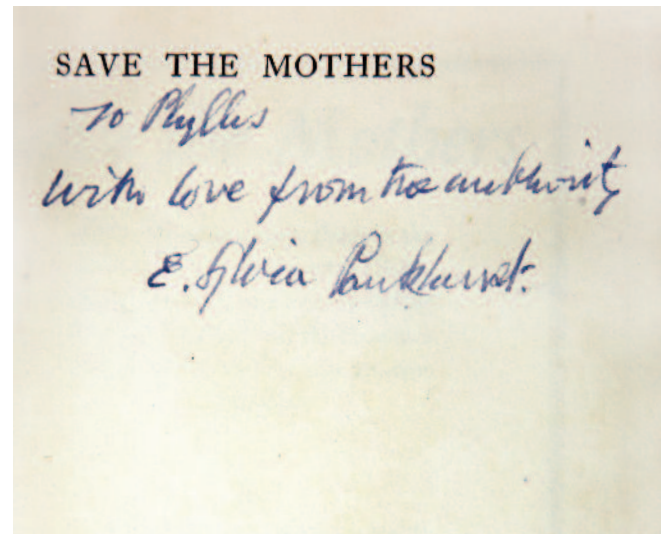 SAVE THE MOTHERS
To Phyllis
with love from the authority
E. Sylvia Pankhurst.